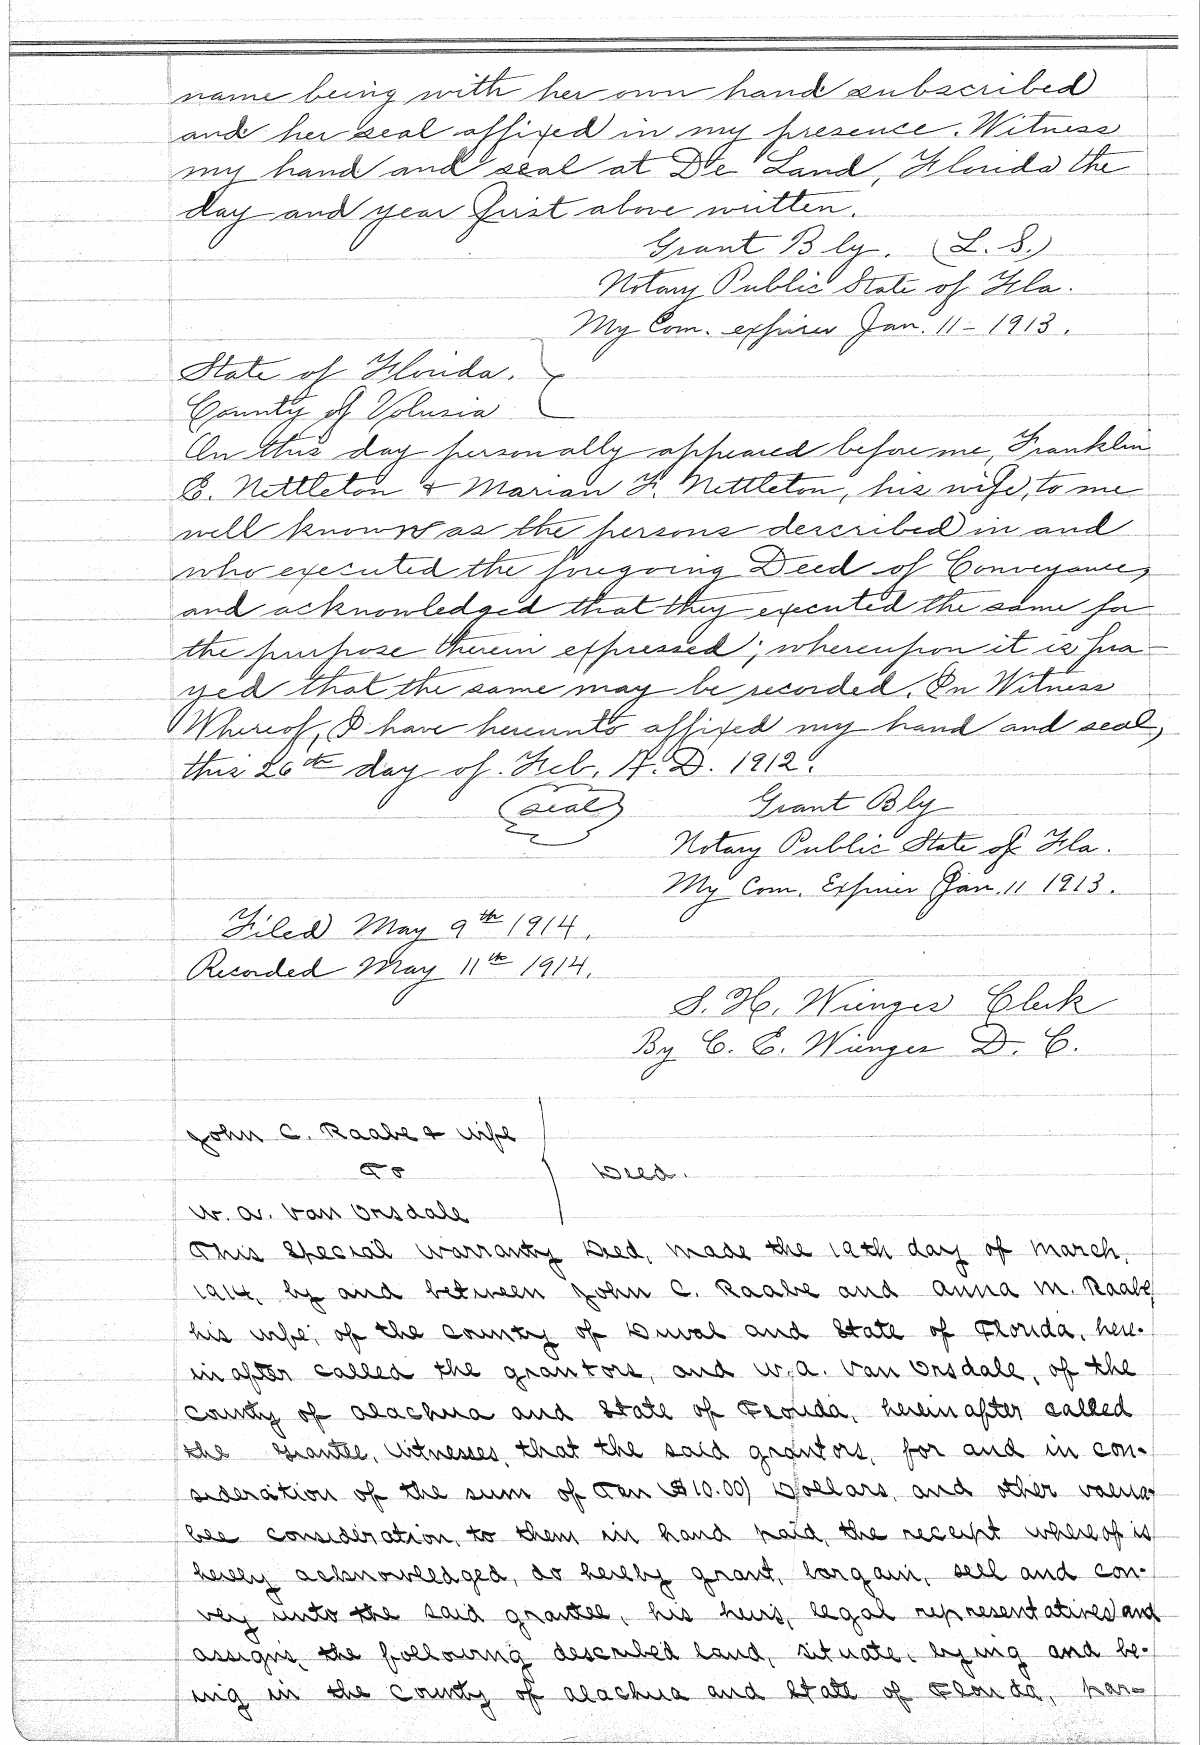 name being with her own hand subscribed
and her seal affixed in my presence. Witness
my hand and seal at De Land, Florida the
day and year first above written.
Grant Bly. (L. S.)
Notary Public State of Fla.
My Com. expires Jan. 11 - 1913.
State of Florida.
County of Volusia
On this day personally appeared before me, Franklin
E. Nettleton & Marian F. Nettleton, his wife, to me
well known as the persons described in and
who executed the foregoing Deed of Conveyance,
and acknowledged that they executed the same for
the purpose therein expressed; whereupon it is pra-
yed that the same may be recorded. In Witness
Whereof, I have hereunto affixed my hand and seal,
this 26th day of Feb. A. D. 1912.
(seal) Grant Bly
Notary Public State of Fla.
My Com. Expires Jan. 11 1913.
Filed May 9th 1914.
Recorded May 11th 1914.
S. H. Wienges Clerk
By C. E. Wienges D. C.
John C. Raabe & wife
To Deed.
W. A. Van Orsdale
This Special Warranty Deed, made the 19th day of March,
1914, by and between John C. Raabe and Anna M. Raabe
his wife, of the County of Duval and State of Florida, here-
in after called the grantors, and W. A. Van Orsdale, of the
County of Alachua and State of Florida, herein after called
the Grantee, Witnesses, that the said grantors, for and in con-
sideration of the sum of Ten ($10.00) Dollars, and other valua-
ble consideration, to them in hand paid, the receipt whereof is
hereby acknowledged, do hereby grant, bargain, sell and con-
vey unto the said grantee, his heirs, legal representatives and
assigns, the following described land, situate, lying and be-
ing in the County of Alachua and State of Florida, par-